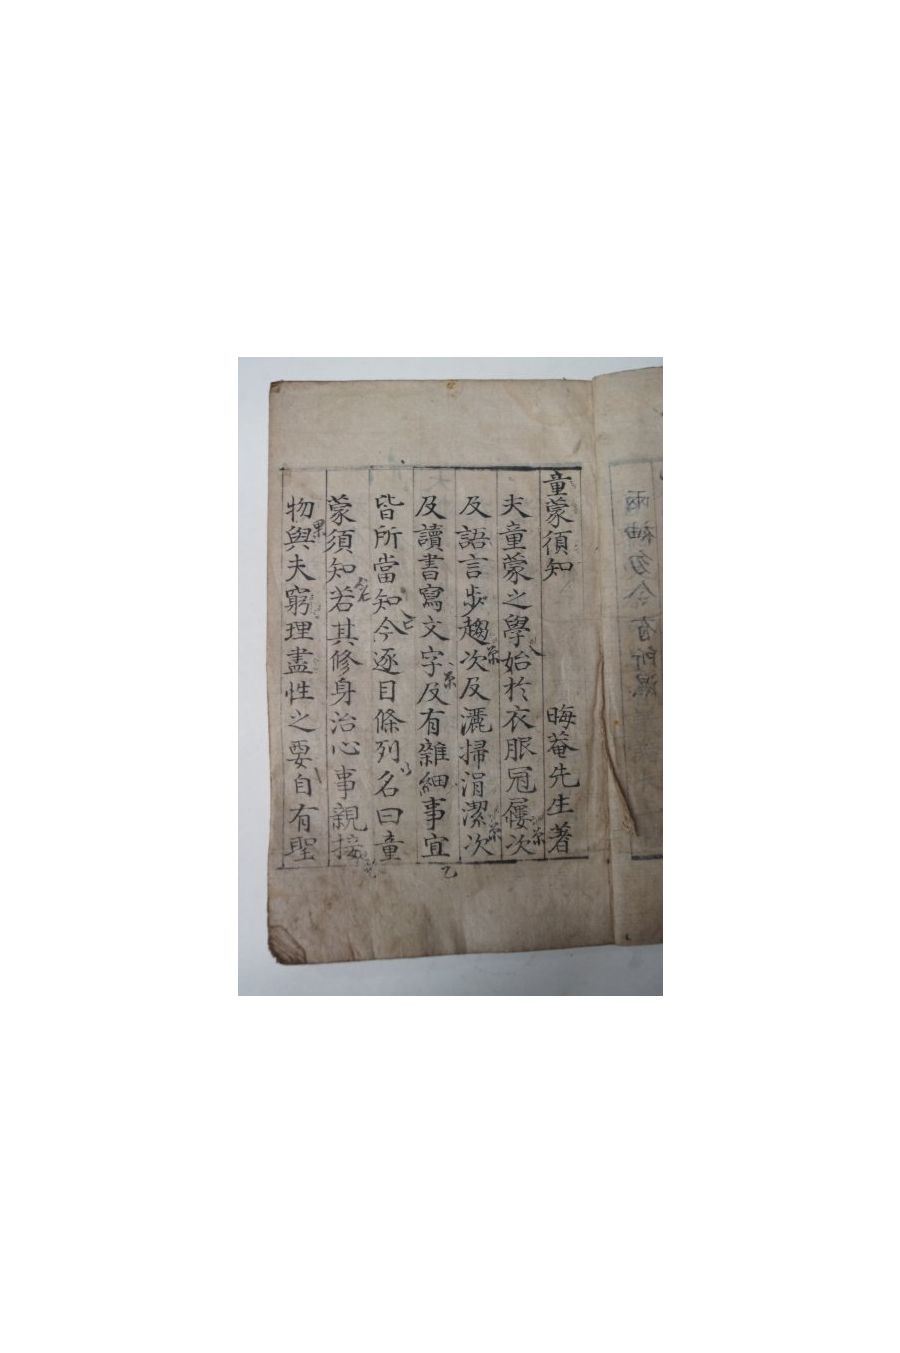 童蒙須知 晦菴先生著
夫童蒙之學始於衣服冠屨次
及語言步趨次及灑掃涓潔次
及讀書寫文字及有雜細事宜
皆所當知今逐目條列名曰童
蒙須知若其修身治心事親接
物與夫窮理盡性之要自有聖